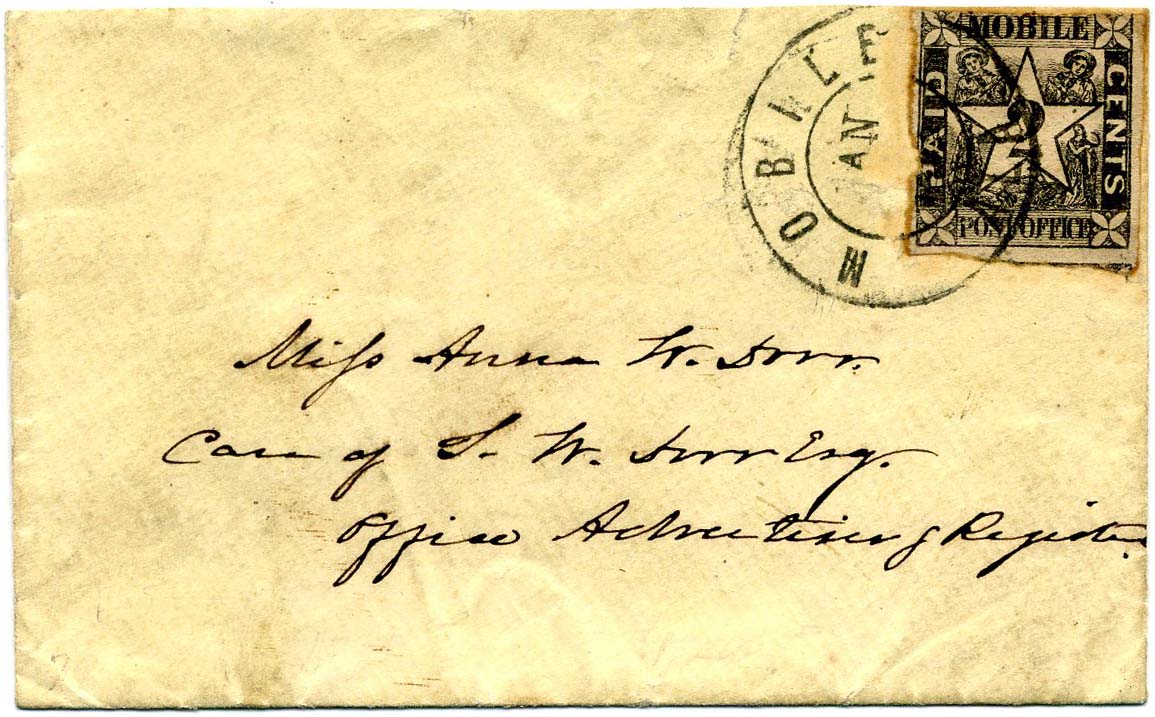 MOBILE
PAID
2
CENTS
POST OFFICE
MOBILE
JAN
Miss Anna W. Dorr.
Care of S. W. Dorr Esq.
Office Advertiser & Register